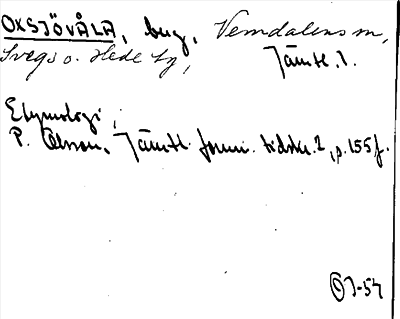 OXSJÖVÅLA, bug, Vemdalens sn,
Svegs o. Hede tg, Jämtl. l.
Etymologi;
P. Olsson, Jämtl. forn. tidskr. 2, p. 155 f.
-54